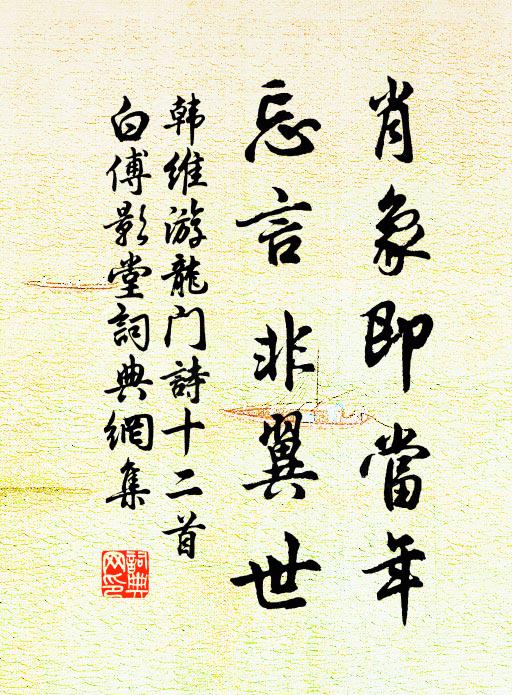 肖象即當年
忘言非異世
韩維游龍门詩十二首
白傅影堂詞典網集
詞典
网印